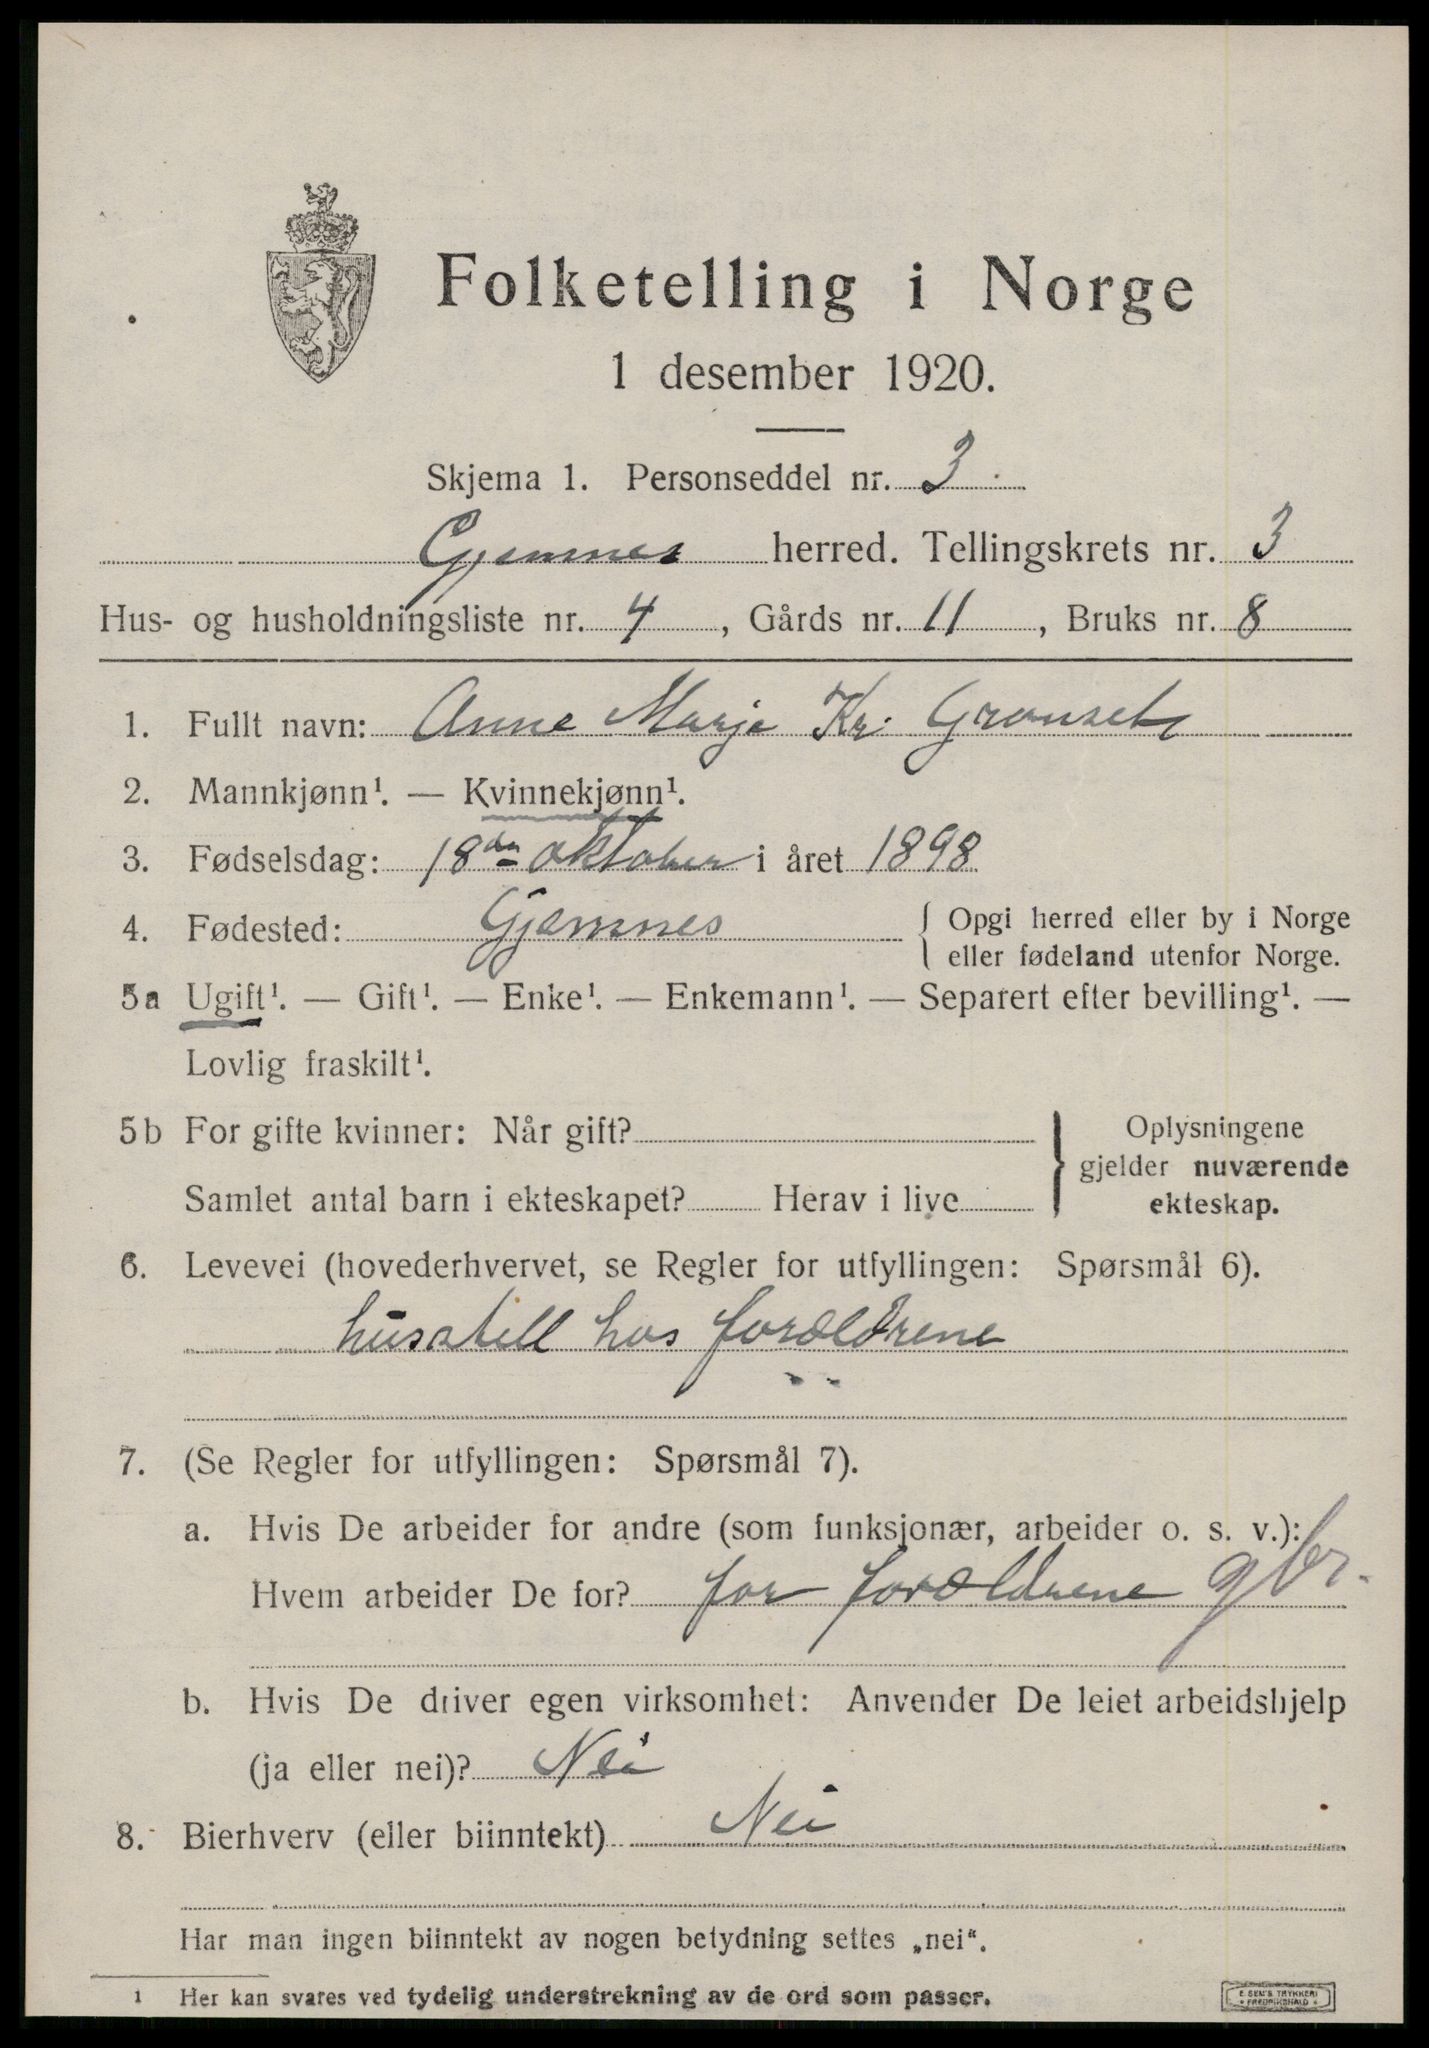 Folketelling i Norge
1 desember 1920.
Skjema 1. Personseddel nr. 3
Gjemnes herred. Tellingskrets nr. 3
Hus- og husholdningsliste nr. 4, Gårds nr. 11, Bruks nr. 8
1. Fullt navn: Anne Marje Kr. Grønset
2. Mannkjønn¹. — Kvinnekjønn¹.
3. Fødselsdag: 18de oktober i året 1898
4. Fødested: Gjemnes { Opgi herred eller by i Norge
eller fødeland utenfor Norge.
5a Ugift¹. — Gift¹. — Enke¹. — Enkemann¹. — Separert efter bevilling¹. —
Lovlig fraskilt¹.
5b For gifte kvinner: Når gift? } Oplysningene
gjelder nuværende
Samlet antal barn i ekteskapet? Herav i live ekteskap.
6. Levevei (hovederhvervet, se Regler for utfyllingen: Spørsmål 6).
husstell hos forældrene
7. (Se Regler for utfyllingen: Spørsmål 7).
a. Hvis De arbeider for andre (som funksjonær, arbeider o. s. v.):
Hvem arbeider De for? for forældrene gbr.
b. Hvis De driver egen virksomhet: Anvender De leiet arbeidshjelp
(ja eller nei)? Nei
8. Bierhverv (eller biinntekt) Nei
Har man ingen biinntekt av nogen betydning settes „nei“.
¹ Her kan svares ved tydelig understrekning av de ord som passer.
E. SEM'S TRYKKERI
• FREDRIKSHALD •